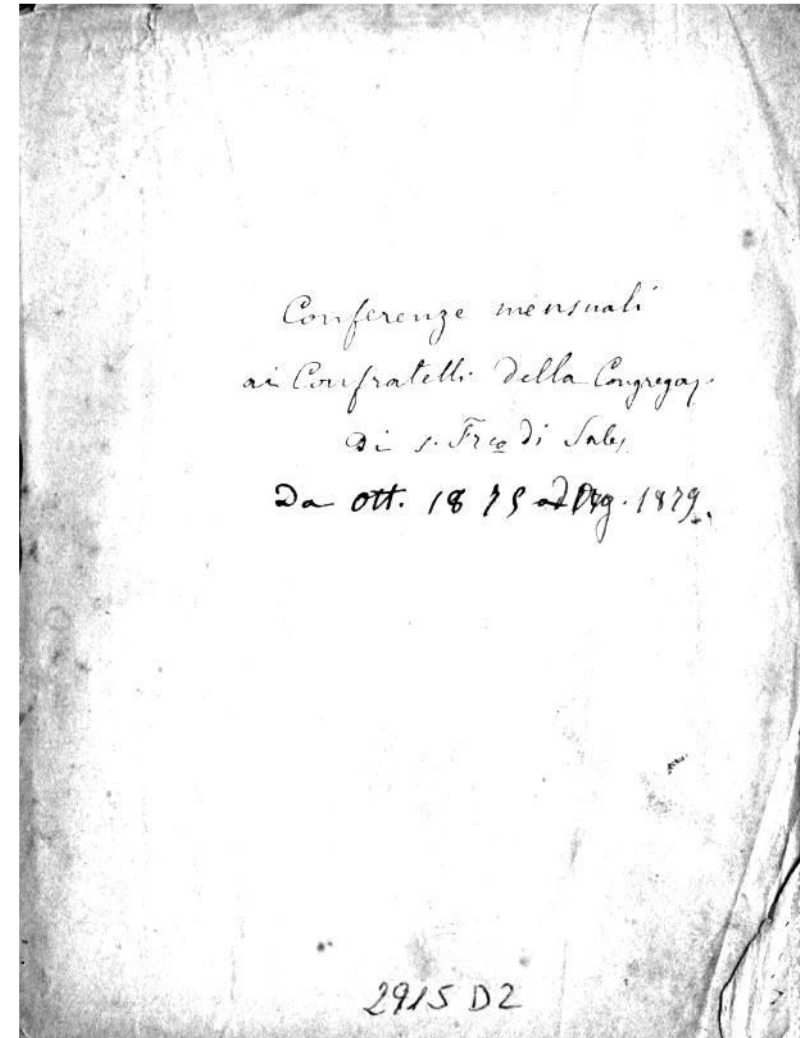 Conferenze mensuali
ai Confratelli della Congregaz.
di s. Frco di Sales
Da ott. 1875 ad 1879.
2915 D2